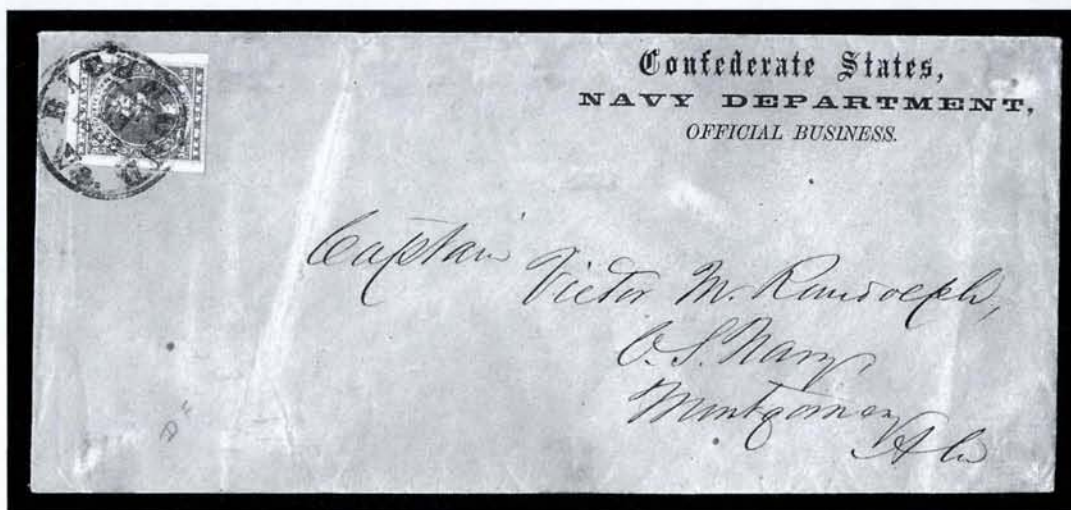 Confederate States,
NAVY DEPARTMENT,
OFFICIAL BUSINESS.
RICHMOND VA.
Captain
Victor M. Randolph,
C. S. Navy,
Montgomery
Ala